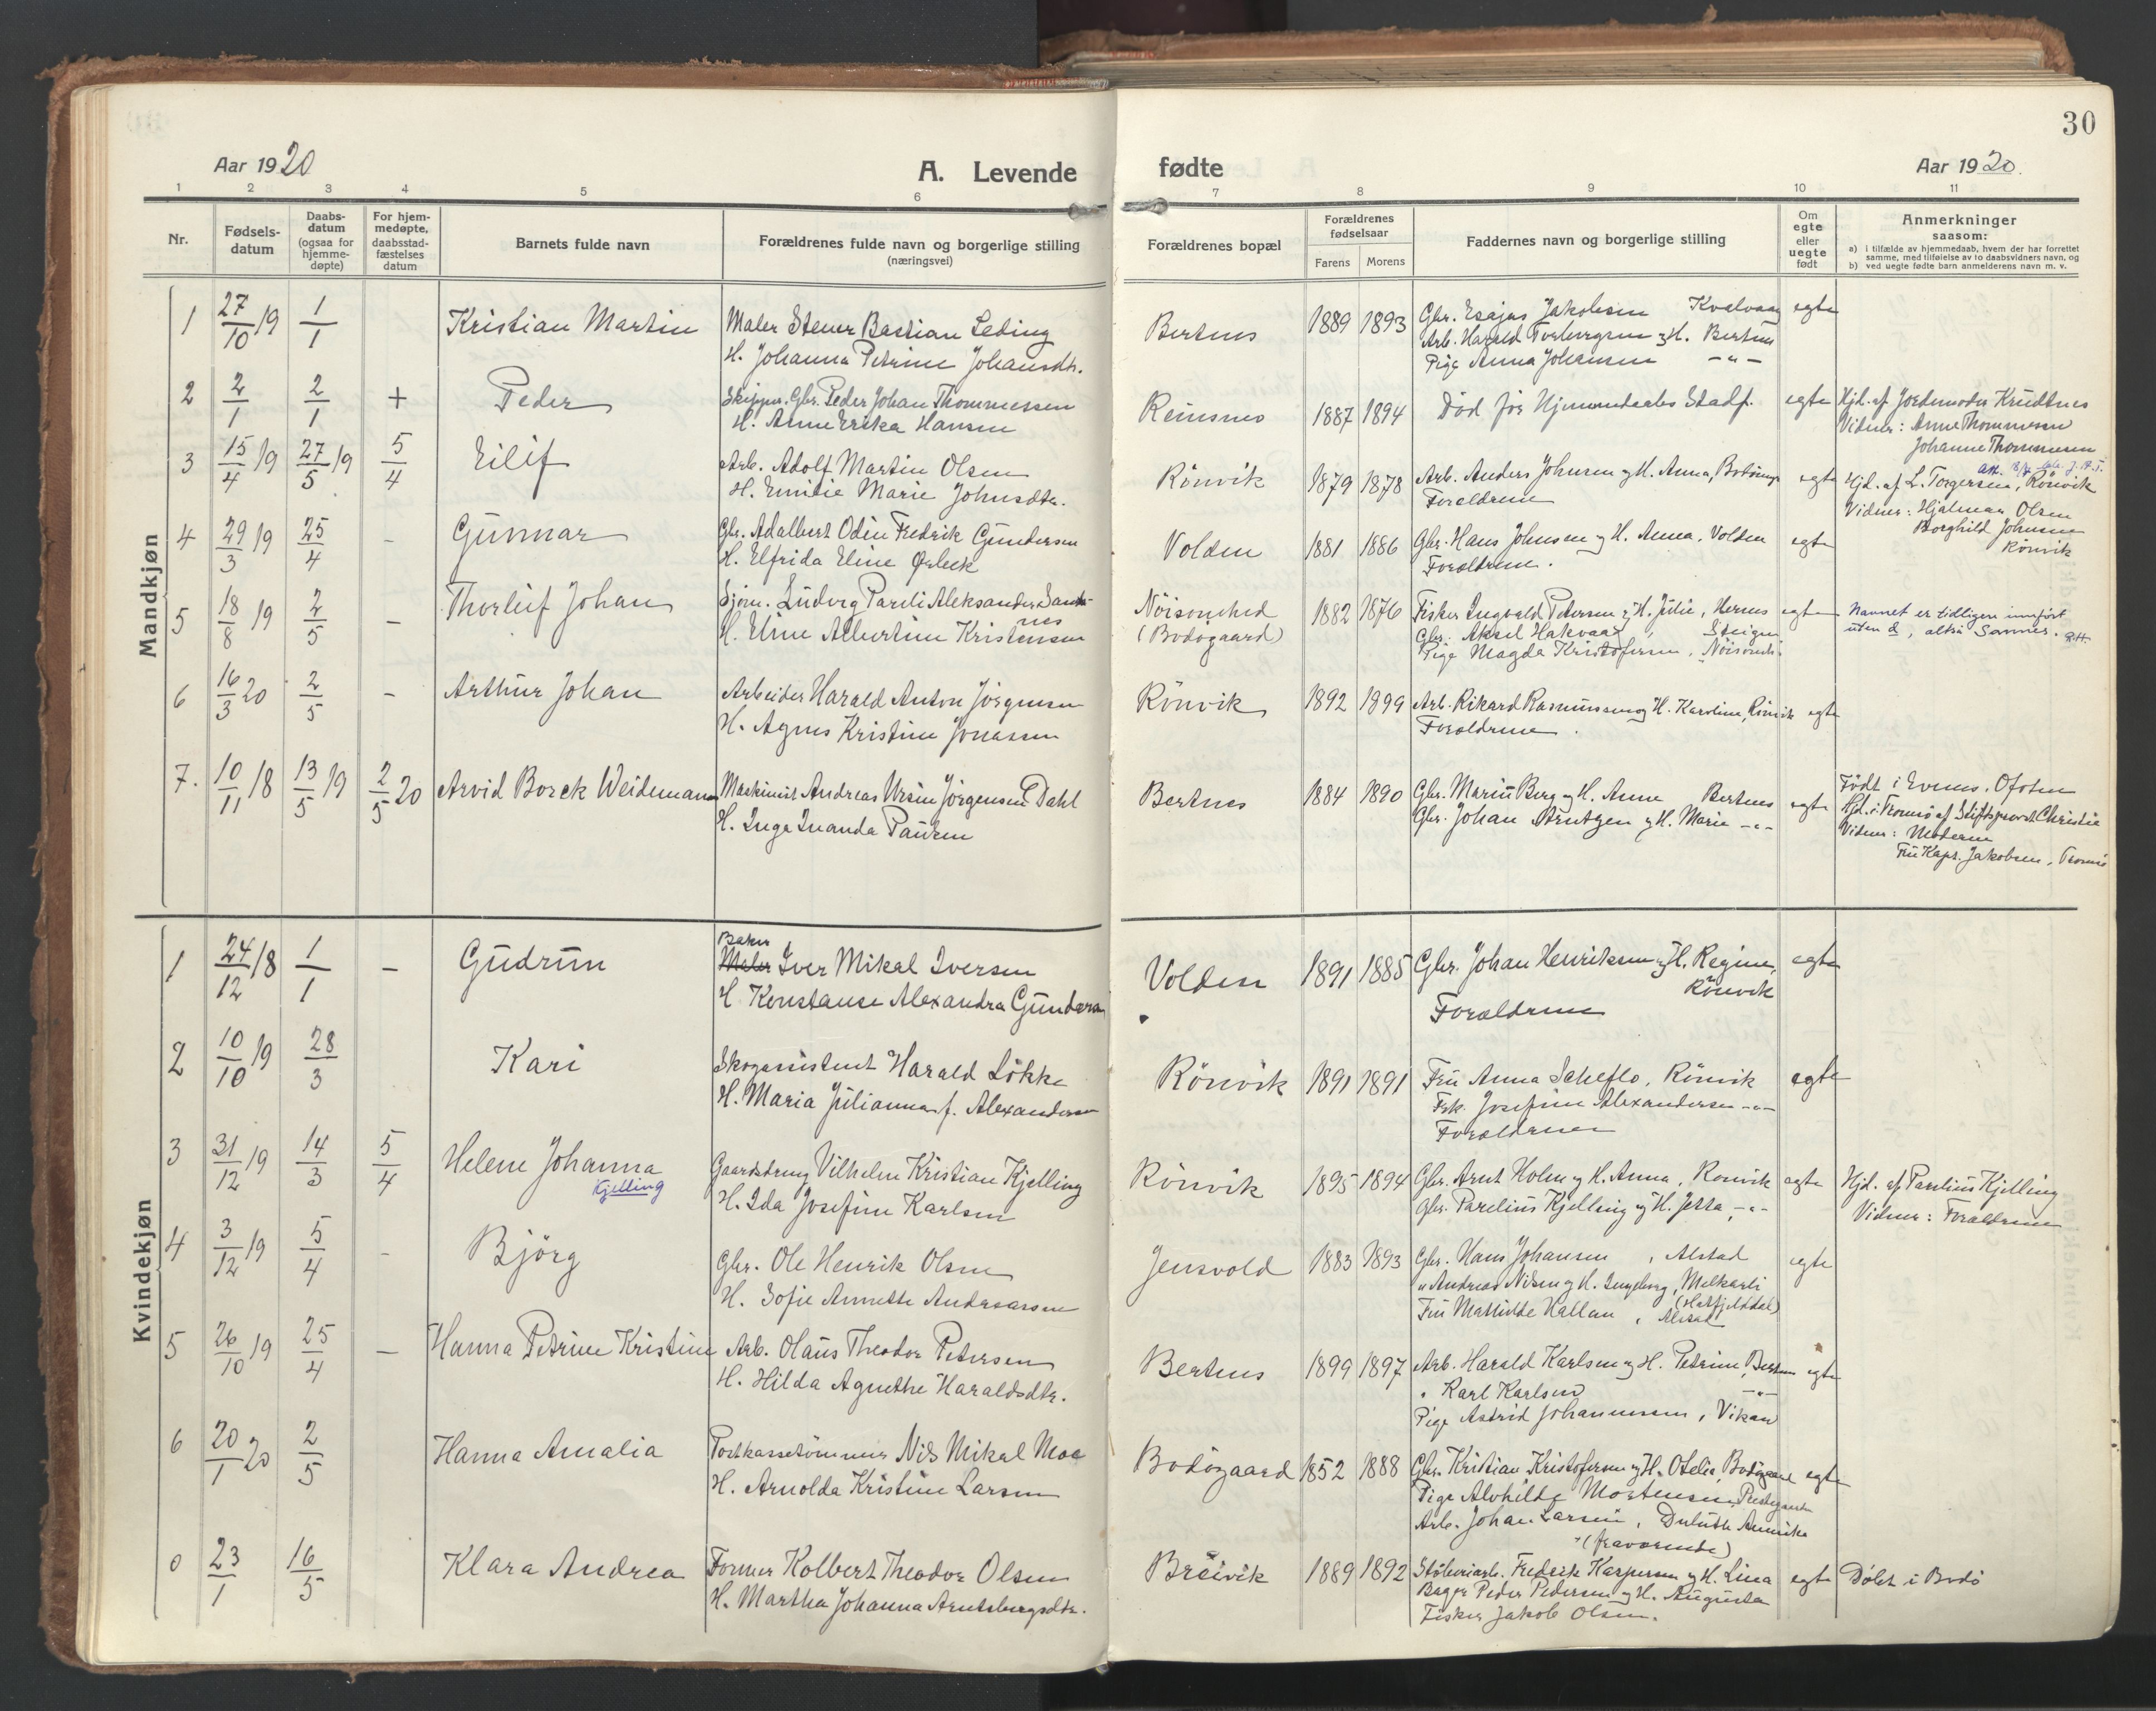 30
Aar 1920
A. Levende
fødte
Aar 1920.
1 2 3 4 5 6 7 8 9 10 11
Nr.
Fødsels-
datum
Daabs-
datum
(ogsaa for
hjemme-
døpte)
For hjem-
medøpte,
daabsstad-
fæstelses
datum
Barnets fulde navn
Forældrenes fulde navn og borgerlige stilling
(næringsvei)
Forældrenes bopæl
Forældrenes
fødselsaar
Farens Morens
Faddernes navn og borgerlige stilling
Om
egte
eller
uegte
født
Anmerkninger
saasom:
a) i tilfælde av hjemmedaab, hvem der har forrettet
samme, med tilføielse av to daabsvidners navn, og
b) ved uegte fødte barn anmelderens navn m. v.
Mandkjøn
1 27/10 19 1/1 Kristian Martin
Maler Stener Bastian Leding
H. Johanna Petrine Johansdtr.
Bertnes 1889 1893
Gbr. Esajas Jakobsen Kvalvaag
Arb. Harald Torbergsen og H. Bertnes
Pige Anna Johansen -"-
egte
2 2/1 2/1 + Peder
Skipper. Gbr. Peder Johan Thommessen
H. Anne Erika Hansen
Reinsnes 1887 1894
Død før Hjemmedaabs Stadf.
egte
Hjd. af Jordemoder Knudtnes
Vidner: Anne Thommesen
Johanne Thommesen
3 15/4 19 27/5 19 5/4 Eilif
Arb. Adolf Martin Olsen
H. Emilie Marie Johnsdtr.
Rönvik 1879 1878
Arb. Anders Johnsen og H. Anna,
Forældrene
egte
Hjd. af L. Torgersen, Rönvik
Vidner: Hjalmar Olsen
Borghild Johnsen
Rönvik
4 29/3 19 25/4 - Gunnar
Gbr. Adalbert Odin Fredrik Gundersen
H. Elfrida Eline
Volden 1881 1886
Gbr. Hans Johnsen og H. Anna, Volden
Forældrene.
egte
5 18/8 19 2/5 - Thorleif Johan
Sjøm. Ludvig Pareli Aleksander Sand-
nes
H. Eline Albertine Kristensen
Nöisomhed
(Bodøgaard)
1882 1876
Fisker Ingvald Petersen og H. Julie, Hernes
Gbr. Aksel Hakvaag, Steigen
Pige Magda Kristofersen, Nöisomh.
egte
Navnet er tidligere innført
uten d, altså Sannes.
6 16/3 20 2/5 - Arthur Johan
Arbeider Harald Anton Jörgensen
H. Agnes Kristine Jonassen
Rönvik 1892 1899
Arb. Rikard Rasmussen og H. Karoline, Rönvik
Forældrene.
egte
7. 10/11 18 13/5 19 2/5 20 Arvid Borck Weidemann
Maskinist Andreas Ursin Jörgensen Dahl
H. Inga Inanda Paulsen
Bertnes 1884 1890
Gbr. Marius Berg og H. Anne Bertnes
Gbr. Johan Arntzen og H. Marie -"-
egte
Født i Evenes. Ofoten
Hjd. i Tromsö af Stiftsprovst Christie
Vidner: Moderen
Fru Kapt. Jakobsen, Tromsö
Kvindekjøn
1 24/12 18 1/1 - Gudrun
Baker
Maler Iver Mikal Iversen
H. Konstanse Alexandra Gundersen
Volden 1891 1885
Gbr. Johan Henriksen og H. Regine,
Rönvik
Forældrene
egte
2 10/10 19 28/3 Kari
Skogassistent Harald Lökke
H. Maria Julianna f. Alexandersen
Rönvik 1891 1891
Fru Anna Scheflo, Rönvik
Frk. Josefine Alexandersen -"-
Forældrene
egte
3 31/12 19 14/3 5/4 Helene Johanna
Kjelling
Gaardsdreng Vilhelm Kristian Kjelling
H. Ida Josefine Karlsen
Rönvik 1895 1894
Gbr. Arnt Holm og H. Anna, Rönvik
Gbr. Parelius Kjelling og H. Jetta -"-
egte
Hjd. af Parelius Kjelling
Vidner: Forældrene
4 3/12 19 5/4 - Björg
Gbr. Ole Henrik Olsen
H. Sofie Annette Andreassen
Jensvold 1883 1893
Gbr. Hans Johansen, Alstad
" Andreas Nilsen og H. Ingeborg, Melkarli
(Hatfjelddal)
Fru Mathilde Hallan, Alstad
egte
5 26/10 19 25/4 - Hanna Petrine Kristine
Arb. Olaus Theodor Petersen
H. Hilda Agnethe Haraldsdtr.
Bertnes 1899 1897
Arb. Harald Karlsen og H. Petrine, Bertnes
" Karl Karlsen -"-
Pige Astrid Johannessen, Vikan
egte
6 20/1 20 2/5 Hanna Amalia
Postkassetömmer Nils Mikal Moe
H. Arnolda Kristine Larsen
Bodøgaard 1852 1888
Gbr. Kristian Kristofersen og H. Otelie, Bodøgaard
Pige Alvhilde Mortensen, Prestegaarden
Arb. Johan Larsen, Duluth Amerika
(fraværende)
egte
0 23/1 16/5 Klara Andrea
Former Kolbert Theodor Olsen
H. Martha Johanna Arntsbergsdtr.
Breivik 1889 1892
Støberiarb. Fredrik Kaspersen og H. Lina
Bager Peder Pedersen og H. Augusta
Fisker Jakob Olsen.
egte
Døbt i Bodö